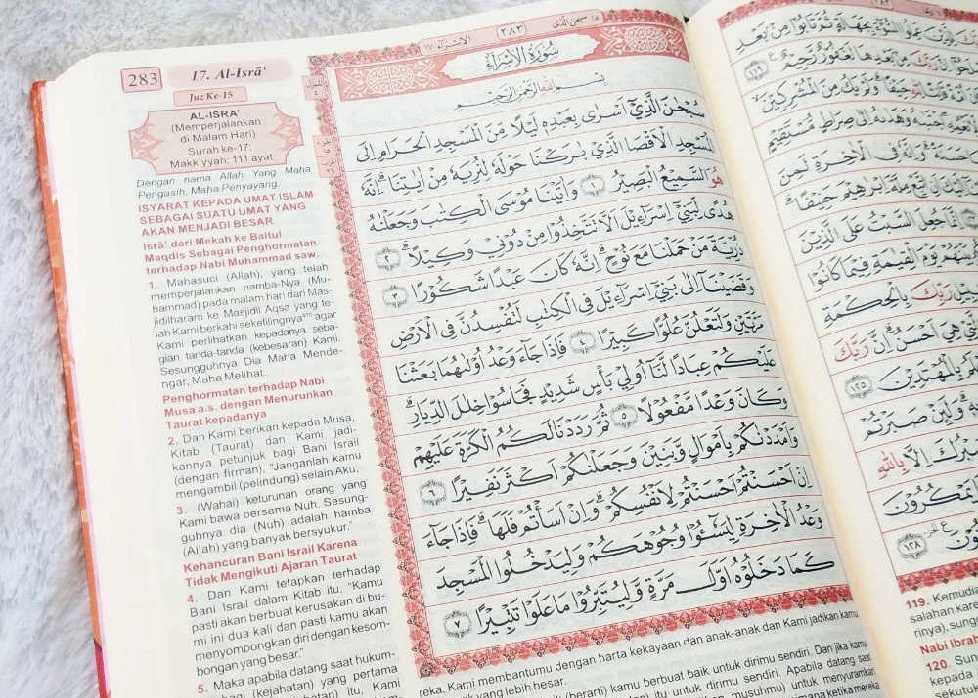 283
17. Al-Isrā'
Juz Ke-15
AL-ISRA'
(Memperjalankan
di Malam Hari)
Surah ke-17:
Makkiyyah: 111 ayat
Dengan nama Allah Yang Maha
Pengasih, Maha Penyayang.
ISYARAT KEPADA UMAT ISLAM
SEBAGAI SUATU UMAT YANG
AKAN MENJADI BESAR
Isra' dari Mekah ke Baitul
Maqdis Sebagai Penghormatan
terhadap Nabi Muhammad saw.
1. Mahasuci (Allah), yang telah
memperjalankan hamba-Nya (Mu-
hammad) pada malam hari dari Mas-
jidilharam ke Masjidil Aqsa yang te-
lah Kami berkahi sekelilingnya agar
Kami perlihatkan kepadanya seba-
gian tanda-tanda (kebesaran) Kami.
Sesungguhnya Dia Maha Mende-
ngar, Maha Melihat.
Penghormatan terhadap Nabi
Musa a.s. dengan Menurunkan
Taurat kepadanya
2. Dan Kami berikan kepada Musa,
Kitab (Taurat) dan Kami jadi-
kannya petunjuk bagi Bani Israil
(dengan firman), "Janganlah kamu
mengambil (pelindung) selain Aku,
3. (Wahai) keturunan orang yang
Kami bawa bersama Nuh. Sesung-
guhnya dia (Nuh) adalah hamba
(Allah) yang banyak bersyukur."
Kehancuran Bani Israil Karena
Tidak Mengikuti Ajaran Taurat
4. Dan Kami tetapkan terhadap
Bani Israil dalam Kitab itu, "Kamu
pasti akan berbuat kerusakan di bu-
mi ini dua kali dan pasti kamu akan
menyombongkan diri dengan kesom-
bongan yang besar."
5. Maka apabila datang saat hukum-
(kejahatan) yang pertama
itu, Kami
٢٨٣
الاسراء ١٧
سبحن الذي ١٥
سُورَةُ الْإِسْرَاءِ
بِسْمِ اللهِ الرَّحْمٰنِ الرَّحِيْمِ
سُبْحٰنَ الَّذِيْٓ اَسْرٰى بِعَبْدِهٖ لَيْلًا مِّنَ الْمَسْجِدِ الْحَرَامِ اِلَى
الْمَسْجِدِ الْاَقْصَا الَّذِيْ بٰرَكْنَا حَوْلَهٗ لِنُرِيَهٗ مِنْ اٰيٰتِنَاۗ اِنَّهٗ
هُوَ السَّمِيْعُ الْبَصِيْرُ ١ وَاٰتَيْنَا مُوْسَى الْكِتٰبَ وَجَعَلْنٰهُ
هُدًى لِّبَنِيْٓ اِسْرَاۤءِيْلَ اَلَّا تَتَّخِذُوْا مِنْ دُوْنِيْ وَكِيْلًاۗ ٢
ذُرِّيَّةَ مَنْ حَمَلْنَا مَعَ نُوْحٍۗ اِنَّهٗ كَانَ عَبْدًا شَكُوْرًا ٣
وَقَضَيْنَآ اِلٰى بَنِيْٓ اِسْرَاۤءِيْلَ فِى الْكِتٰبِ لَتُفْسِدُنَّ فِى الْاَرْضِ
مَرَّتَيْنِ وَلَتَعْلُنَّ عُلُوًّا كَبِيْرًا ٤ فَاِذَا جَاۤءَ وَعْدُ اُوْلٰىهُمَا بَعَثْنَا
عَلَيْكُمْ عِبَادًا لَّنَآ اُولِيْ بَأْسٍ شَدِيْدٍ فَجَاسُوْا خِلٰلَ الدِّيَارِۗ
وَكَانَ وَعْدًا مَّفْعُوْلًا ٥ ثُمَّ رَدَدْنَا لَكُمُ الْكَرَّةَ عَلَيْهِمْ
وَاَمْدَدْنٰكُمْ بِاَمْوَالٍ وَّبَنِيْنَ وَجَعَلْنٰكُمْ اَكْثَرَ نَفِيْرًا ٦
اِنْ اَحْسَنْتُمْ اَحْسَنْتُمْ لِاَنْفُسِكُمْۗ وَاِنْ اَسَأْتُمْ فَلَهَاۗ فَاِذَا جَاۤءَ
وَعْدُ الْاٰخِرَةِ لِيَسٗۤـُٔوْا وُجُوْهَكُمْ وَلِيَدْخُلُوا الْمَسْجِدَ
كَمَا دَخَلُوْهُ اَوَّلَ مَرَّةٍ وَّلِيُتَبِّرُوْا مَا عَلَوْا تَتْبِيْرًا ٧
reka, Kami membantumu dengan harta kekayaan dan anak-anak dan Kami jadikan kamu
yang lebih besar.
(berarti) kamu berbuat baik untuk dirimu sendiri. Dan jika kamu
itu untuk dirimu sendiri. Apabila datang saat
(musuhmu) untuk menyuramkan
عَمِلُوا السُّوْۤءَ بِجَهَالَةٍ ثُمَّ تَابُوْا مِنْۢ بَعْدِ
رَبَّكَ مِنْۢ بَعْدِهَا لَغَفُوْرٌ رَّحِيْمٌ
حَنِيْفًاۗ وَلَمْ يَكُ مِنَ الْمُشْرِكِيْنَ
وَهَدٰىهُ اِلٰى صِرَاطٍ مُّسْتَقِيْمٍ
حَسَنَةً ۗوَاِنَّهٗ فِى الْاٰخِرَةِ لَمِنَ
اِبْرٰهِيْمَ حَنِيْفًاۗ
جُعِلَ السَّبْتُ عَلَى الَّذِيْنَ
يَوْمَ الْقِيٰمَةِ فِيْمَا كَانُوْا
رَبِّكَ بِالْحِكْمَةِ
هِيَ اَحْسَنُۗ اِنَّ رَبَّكَ
بِالْمُهْتَدِيْنَ ١٢٥
وَلَىِٕنْ صَبَرْتُمْ
اِلَّا بِاللّٰهِ
يَمْكُرُوْنَ
١٢٨
119. Kemudian
salahan karena
Nabi Ibra
120.
kepada